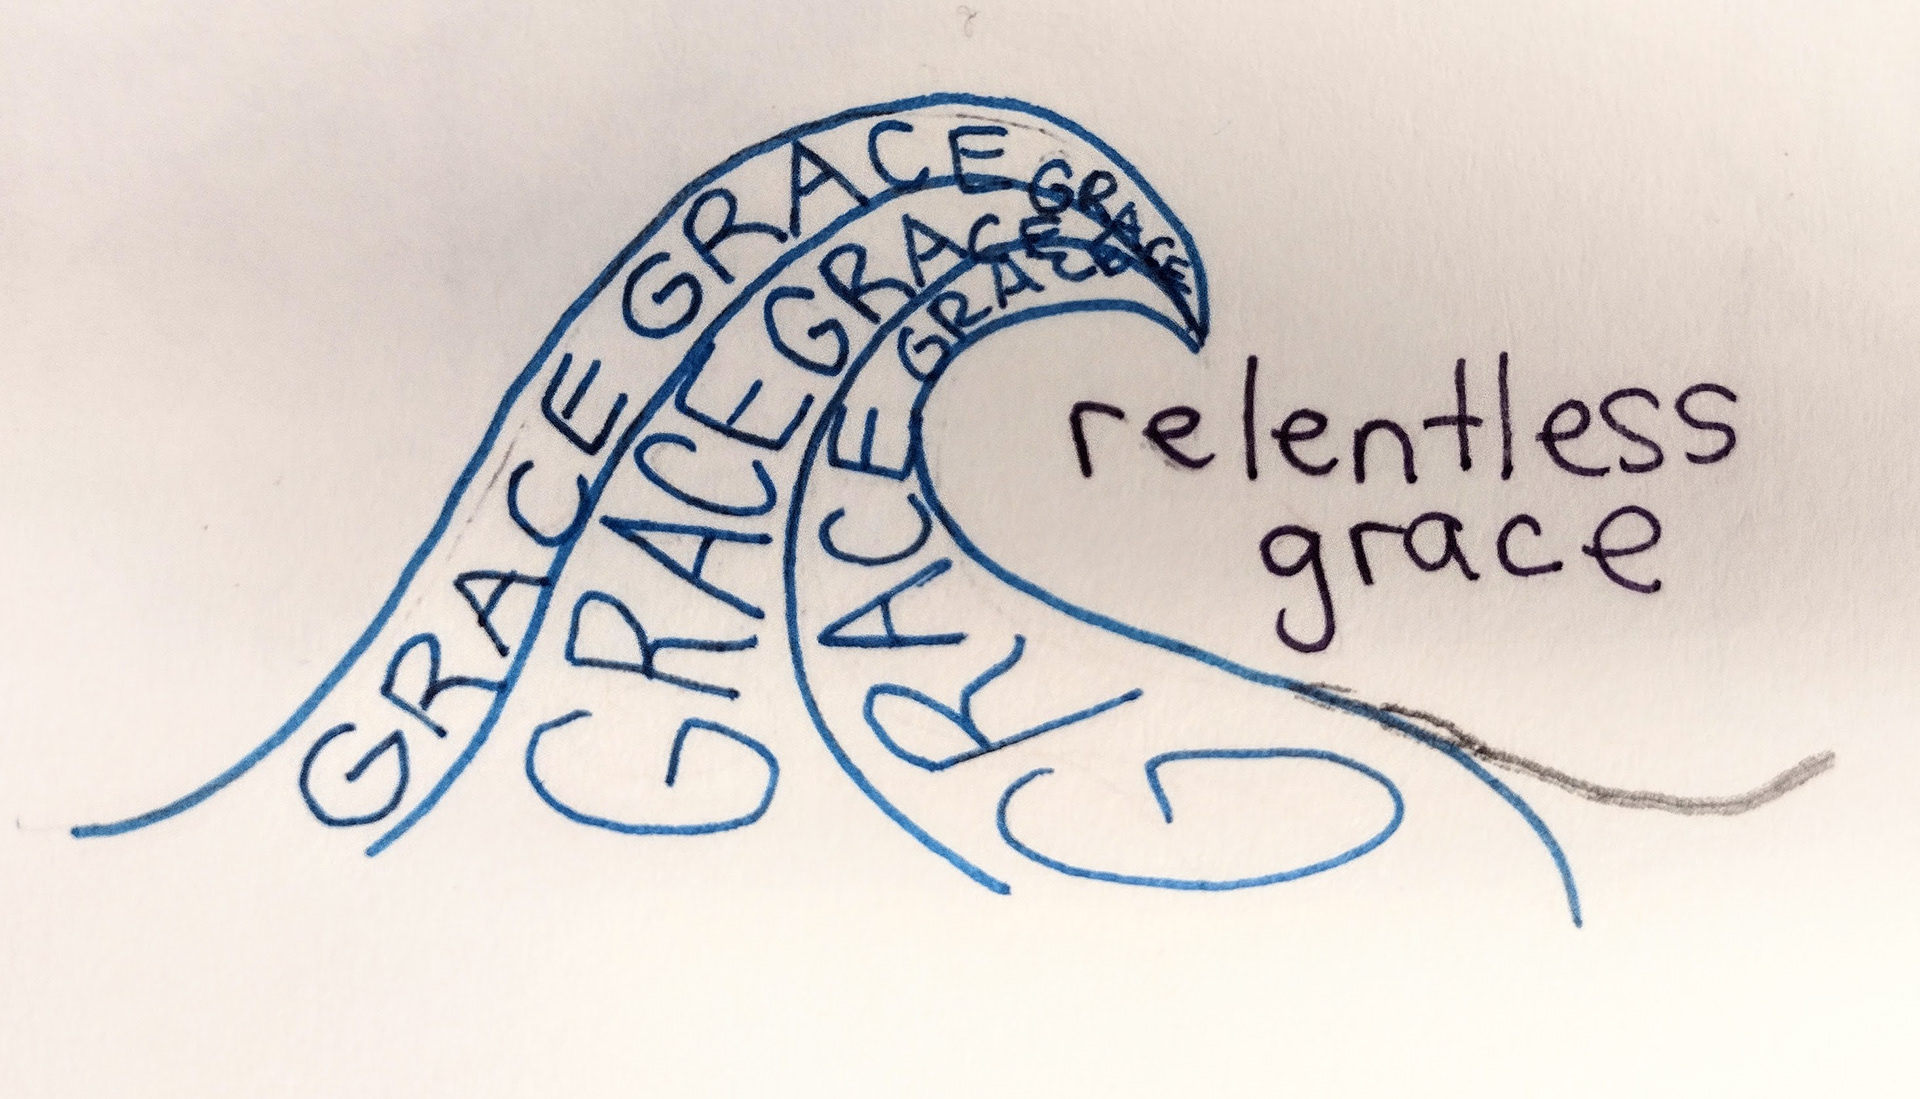 GRACE GRACE GRACE
GRACE GRACE
GRACE GRACE
relentless
grace